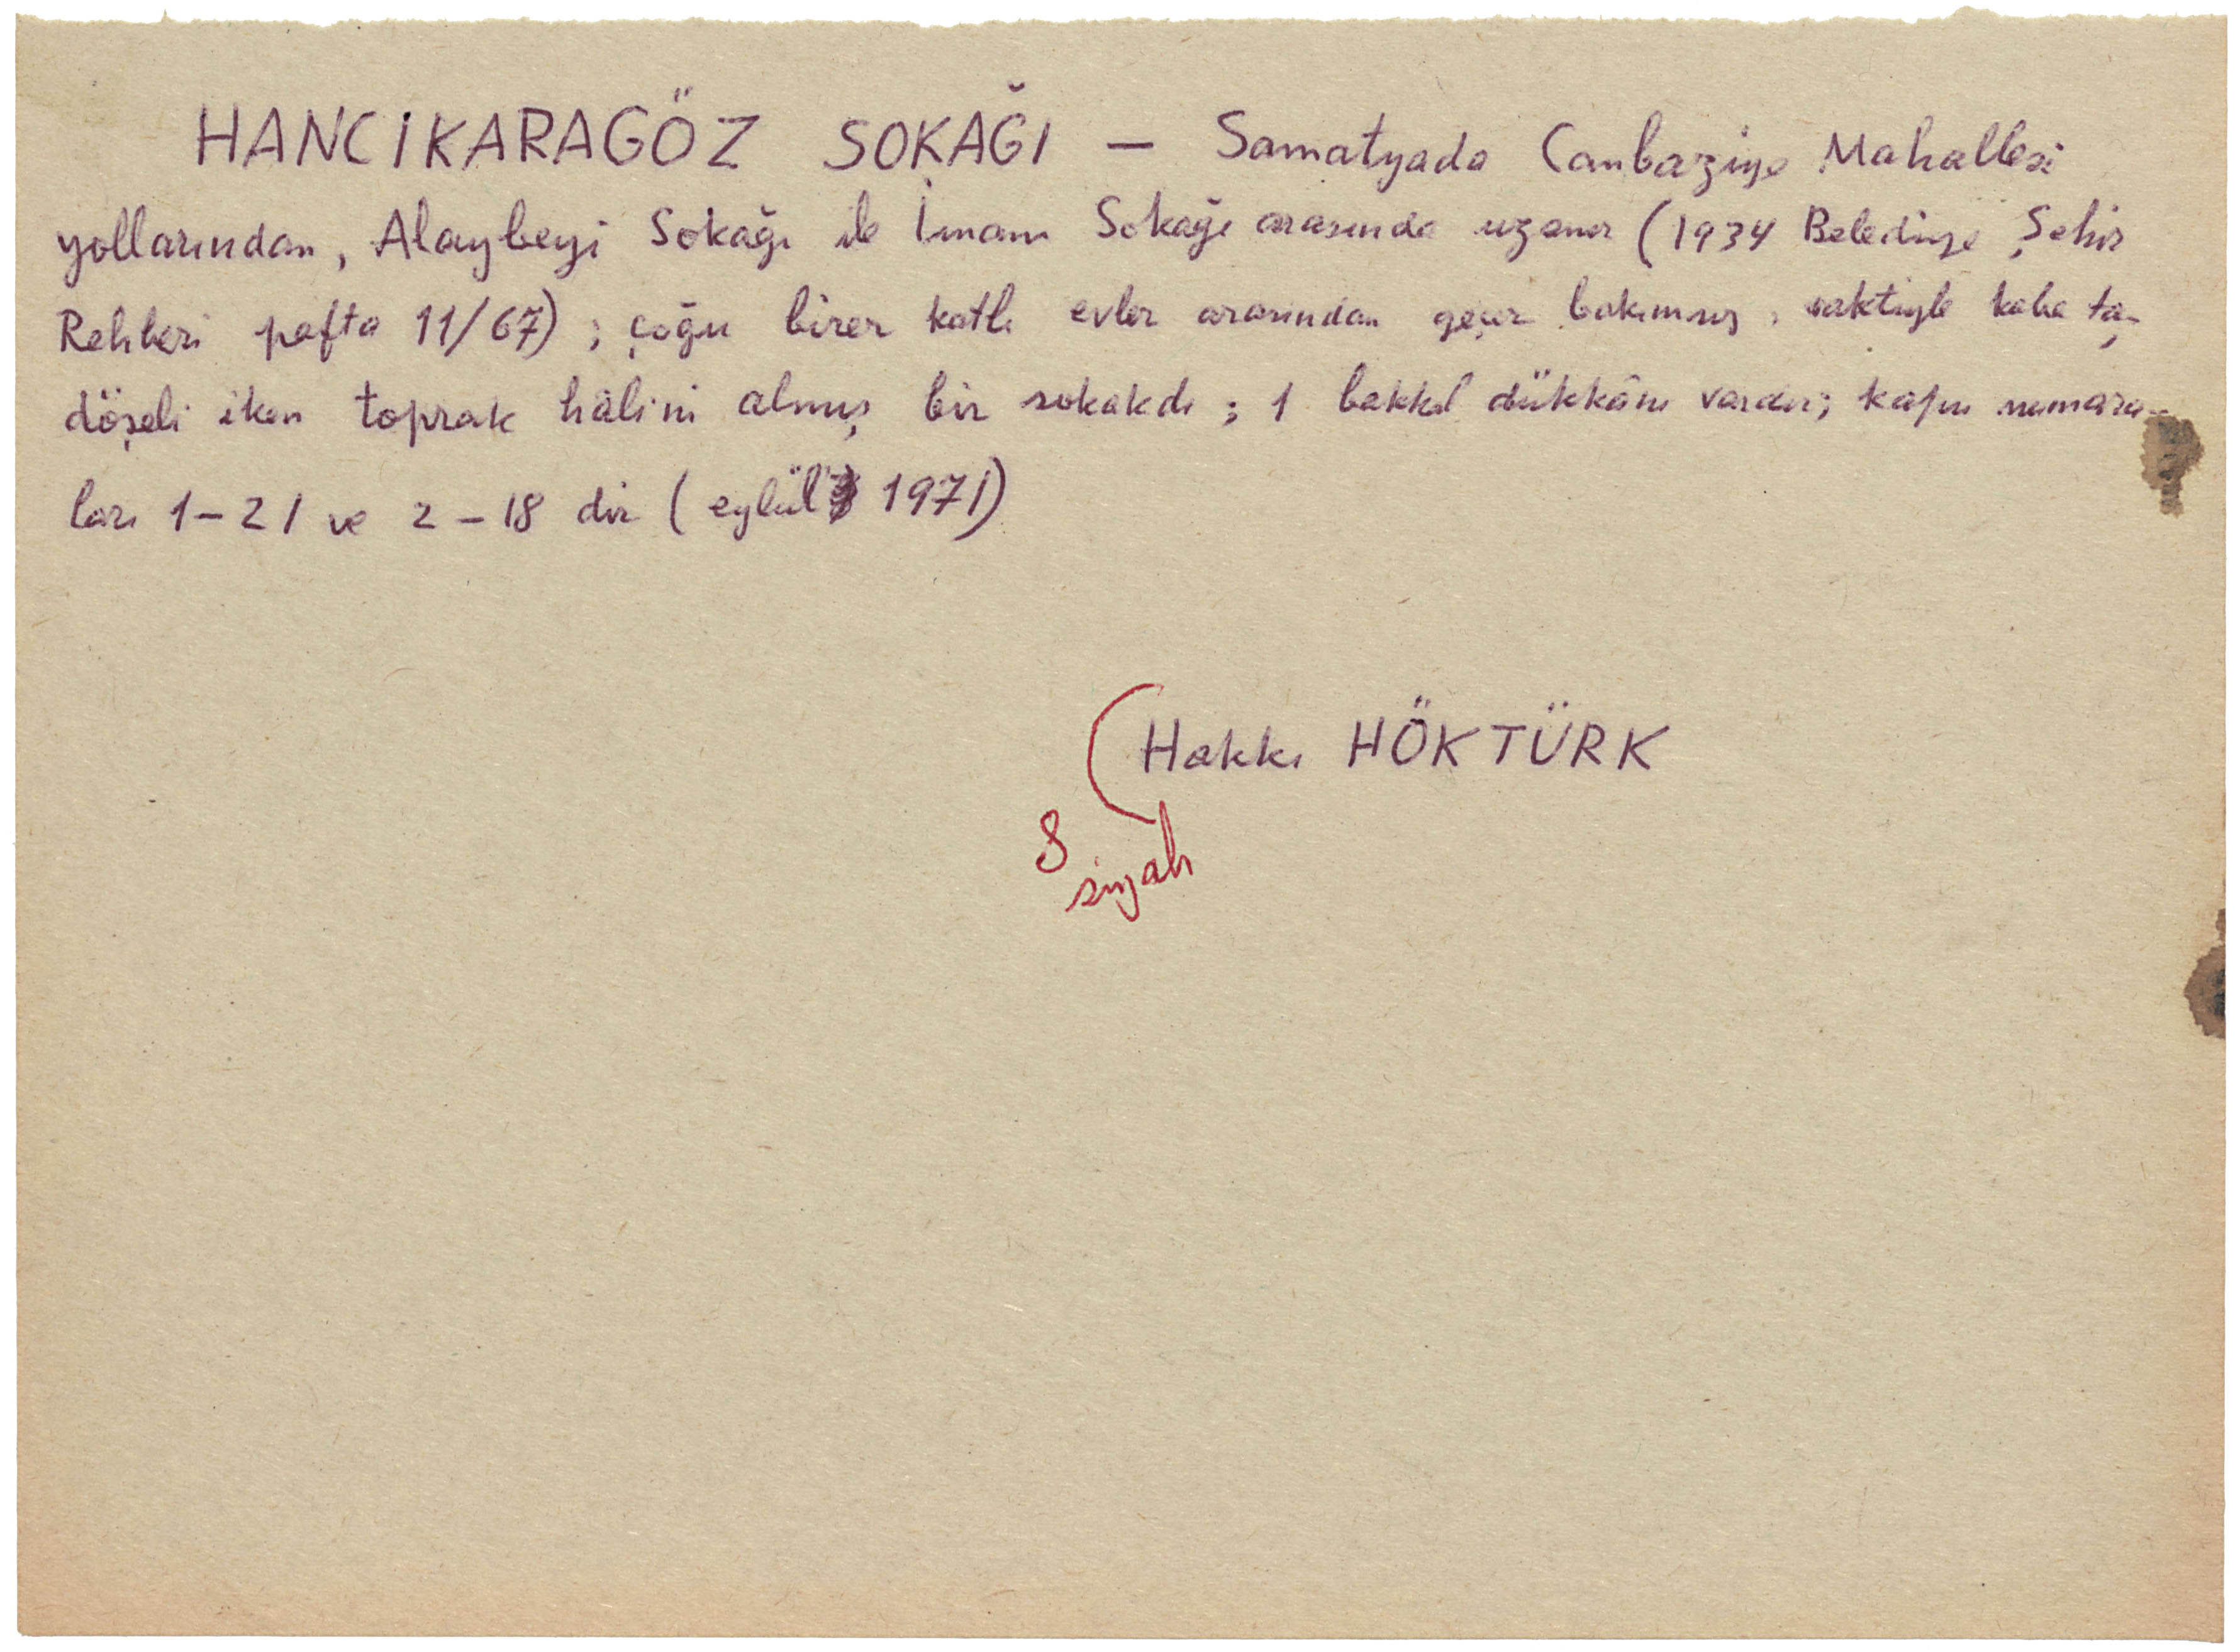 HANCIKARAGÖZ SOKAĞI — Samatyada Canbaziye Mahallesi
yollarından, Alaybeyi Sokağı ile İmam Sokağı arasında uzanır (1934 Belediye Şehir
Rehberi pafta 11/67) ; çoğu birer katlı evler arasından geçer bakımsız, vaktiyle kaba taş
döşeli iken toprak hâlini almış bir sokakdı ; 1 bakkal dükkânı vardır; kapu numara-
ları 1-21 ve 2-18 dir (eylül 1971)
Hakkı HÖKTÜRK
8
siyah